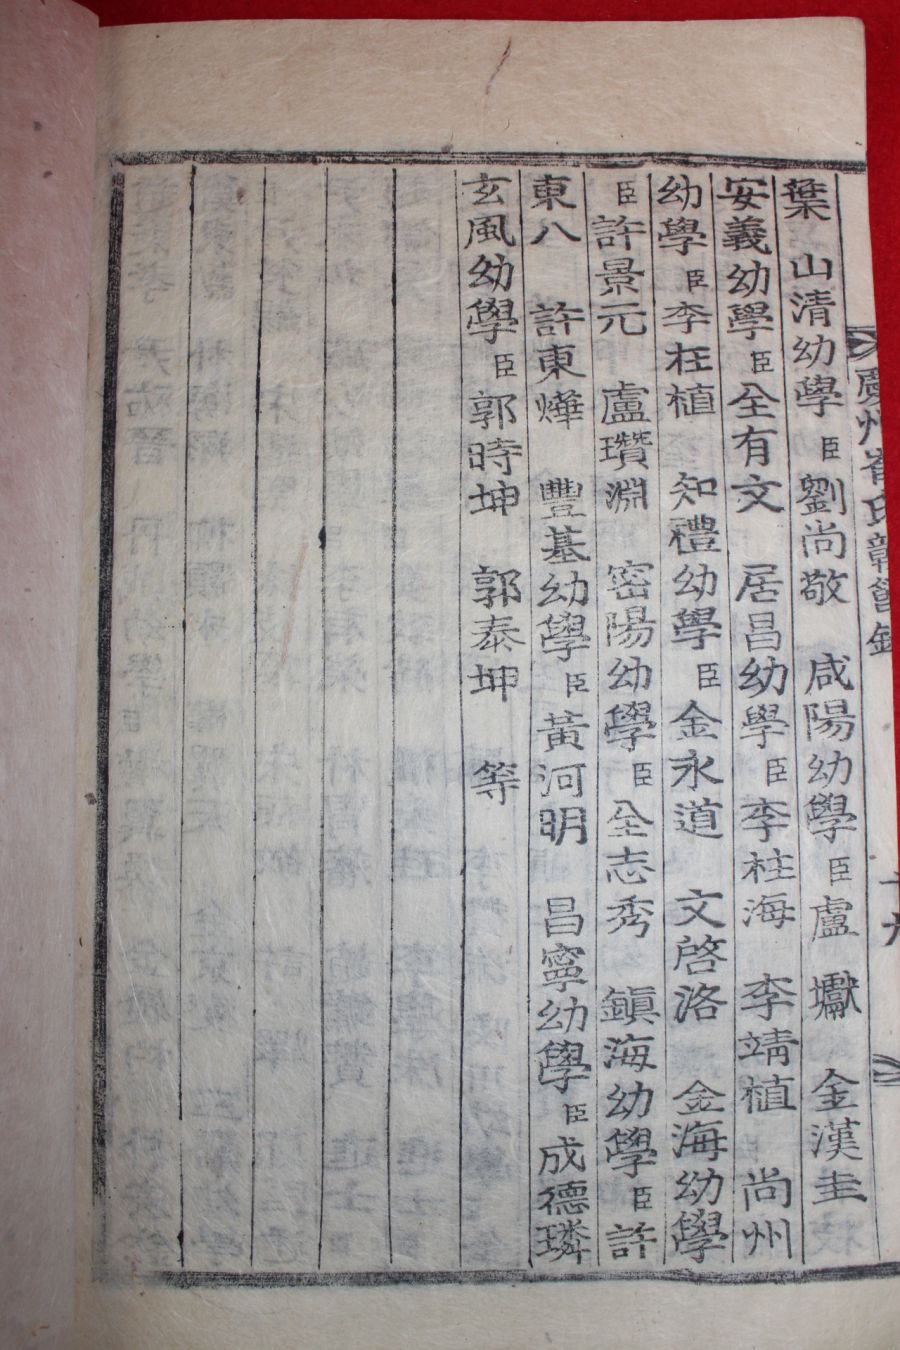 廣州崔氏
葉山清幼學臣劉尚敬 咸陽幼學臣盧㺘 金漢圭
安義幼學臣全有文 居昌幼學臣李柱海 李靖植 尚州
幼學臣李枉植 知禮幼學臣金永道 文啓洛 金海幼學
臣許景元 盧瓚淵 密陽幼學臣全志秀 鎭海幼學臣許
東八 許東燁 豐基幼學臣黃河明 昌寧幼學臣成德璘
玄風幼學臣郭時坤 郭泰坤 等